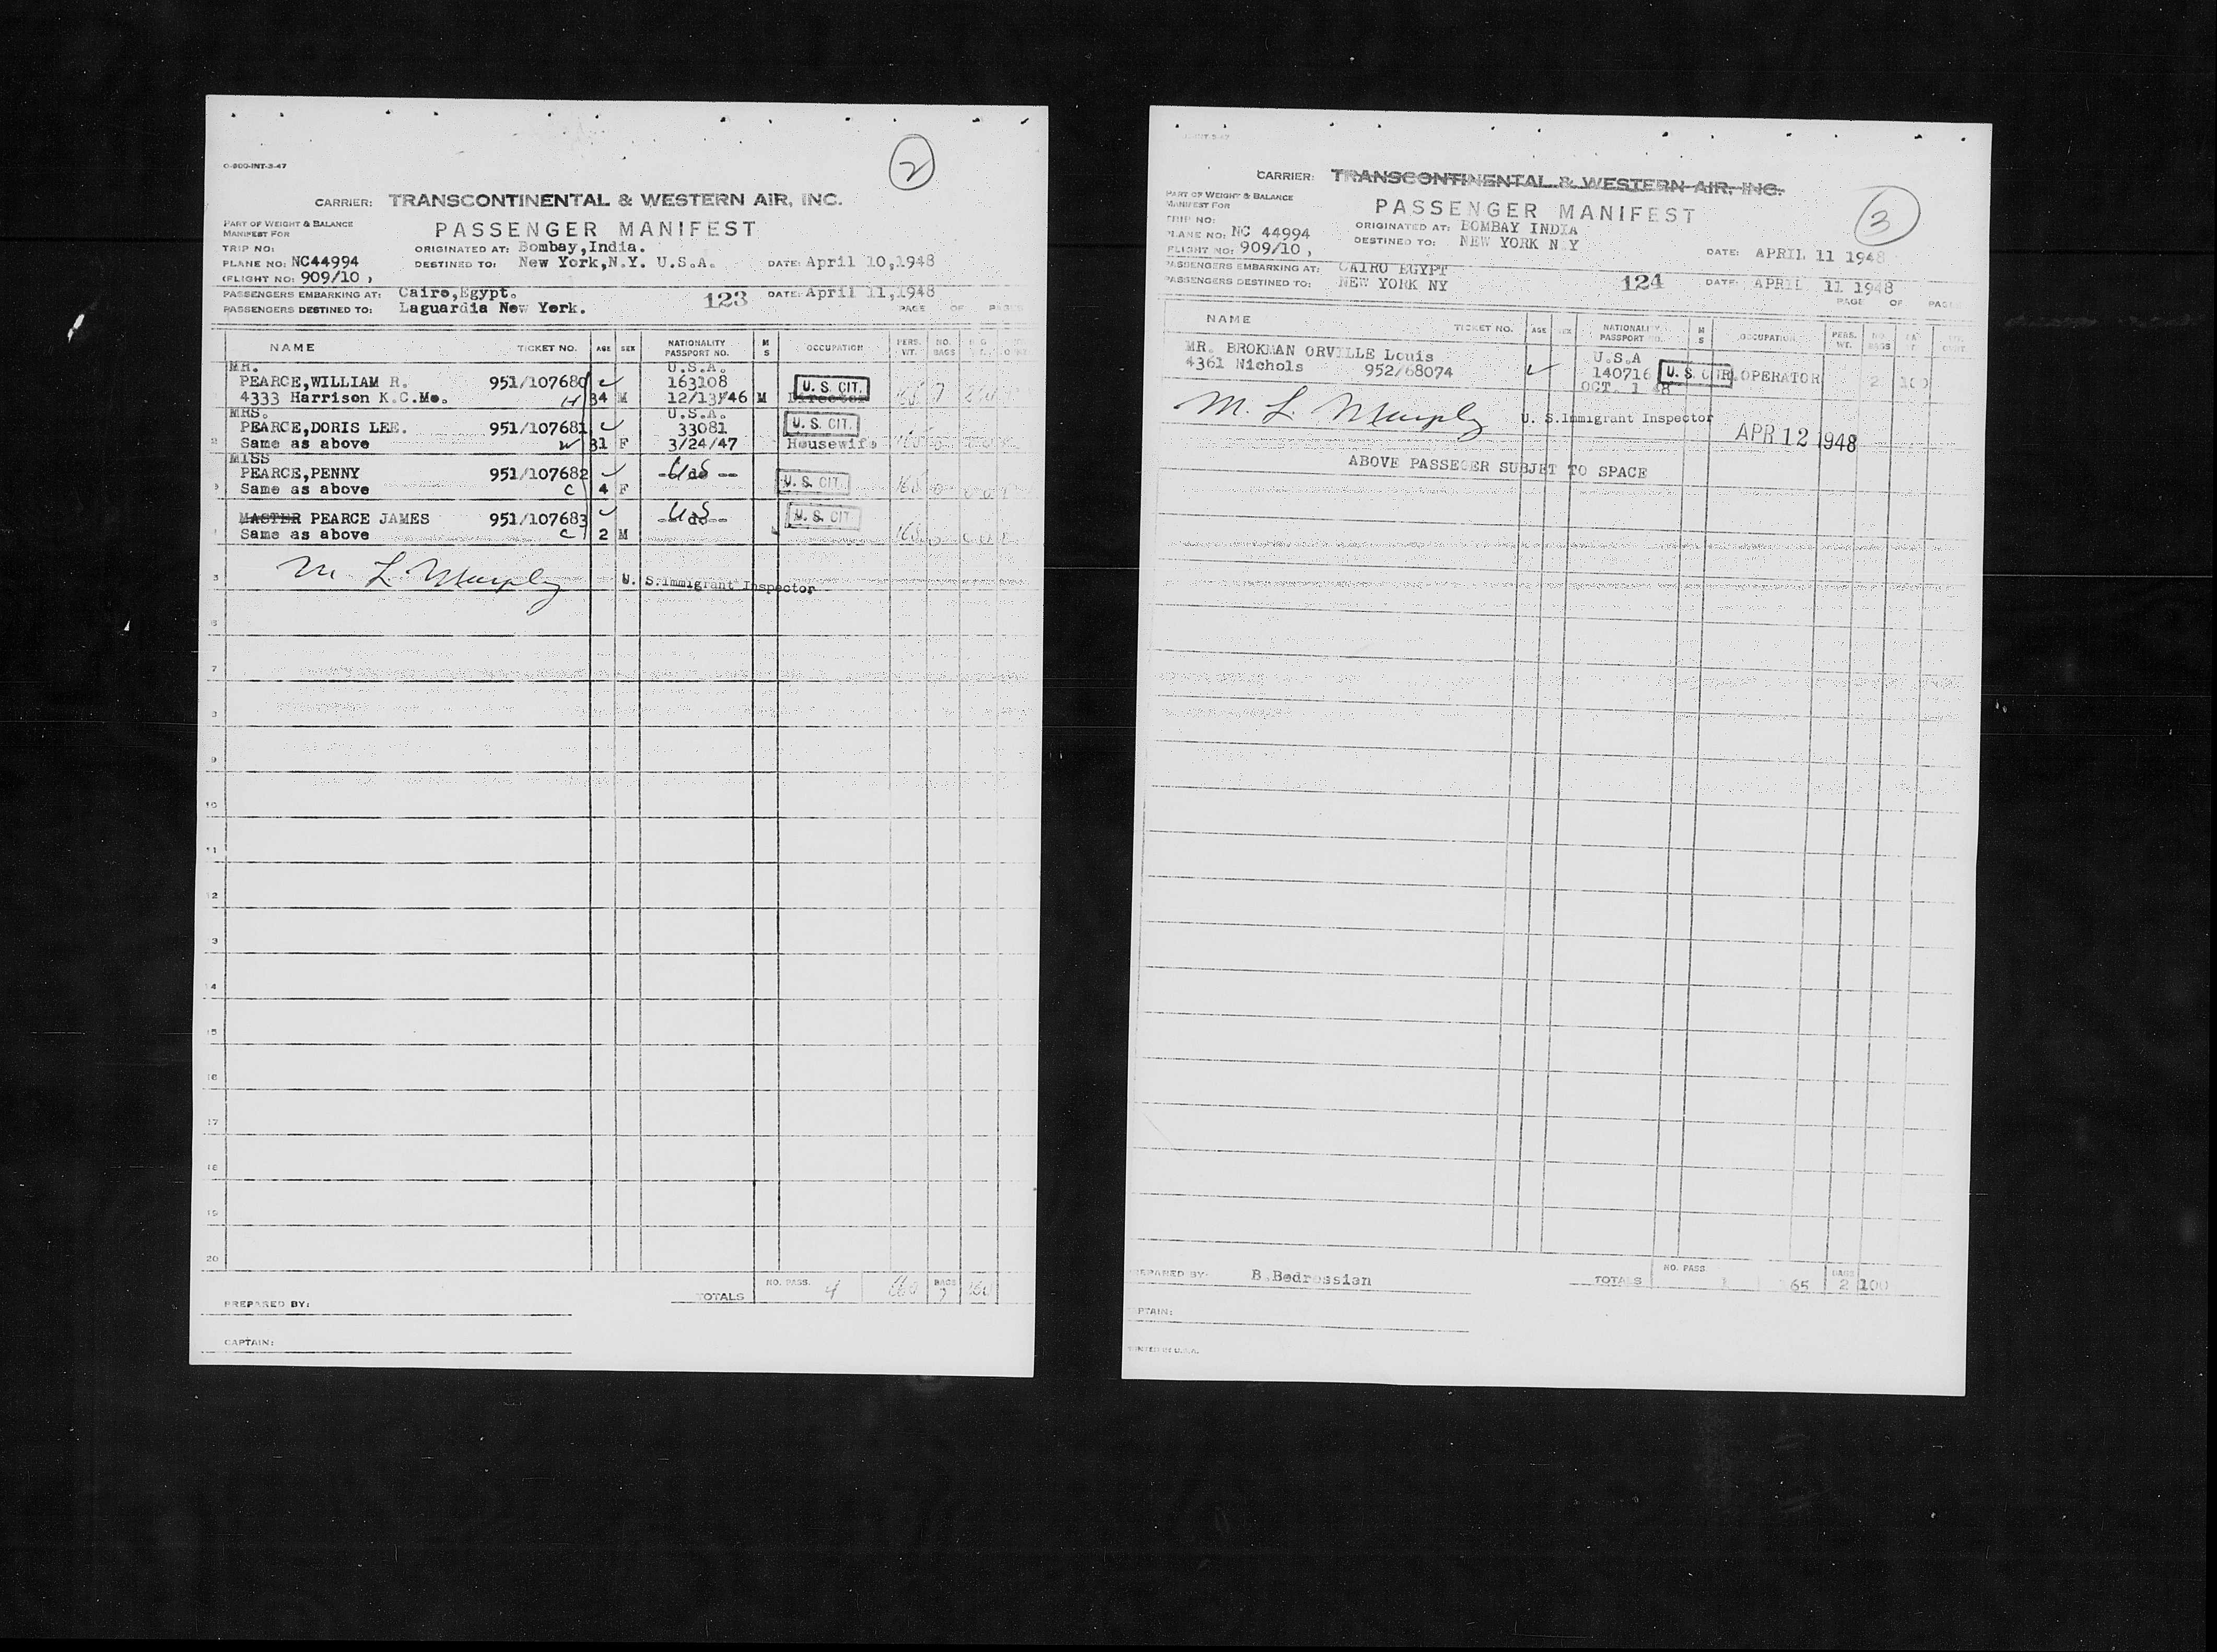 O-800-INT-3-47
2
CARRIER: TRANSCONTINENTAL & WESTERN AIR, INC.
PART OF WEIGHT & BALANCE
MANIFEST FOR
PASSENGER MANIFEST
TRIP NO: ORIGINATED AT: Bombay,India.
PLANE NO: NC44994 DESTINED TO: New York,N.Y. U.S.A. DATE: April 10,1948
(FLIGHT NO: 909/10 )
PASSENGERS EMBARKING AT: Cairo,Egypt. 123 DATE: April 11,1948
PASSENGERS DESTINED TO: Laguardia New York. PAGE OF PAGES
NAME TICKET NO. AGE SEX NATIONALITY PASSPORT NO. M S OCCUPATION PERS. WT. NO. BAGS
MR. U.S.A.
PEARCE,WILLIAM R. 951/107680 163108 U. S. CIT.
4333 Harrison K.C.Mo. H 34 M 12/13/46 M Director
MRS. U.S.A.
PEARCE,DORIS LEE. 951/107681 33081 U. S. CIT.
2 Same as above W 31 F 3/24/47 Housewife
MISS
PEARCE,PENNY 951/107682 --do-- US
3 Same as above C 4 F U. S. CIT.
MASTER PEARCE JAMES 951/107683 --do-- US U. S. CIT.
Same as above C 2 M
M L Murphy U. S.Immigrant Inspector
5
6
7
8
9
10
11
12
13
14
15
16
17
18
19
20
TOTALS NO. PASS. 4 660 BAGS 7 160
PREPARED BY:
CAPTAIN:
CARRIER: TRANSCONTINENTAL & WESTERN AIR, INC.
PART OF WEIGHT & BALANCE
MANIFEST FOR
PASSENGER MANIFEST
3
TRIP NO: ORIGINATED AT: BOMBAY INDIA
PLANE NO: NC 44994 DESTINED TO: NEW YORK N Y DATE: APRIL 11 1948
FLIGHT NO: 909/10 ,
PASSENGERS EMBARKING AT: CAIRO EGYPT
PASSENGERS DESTINED TO: NEW YORK NY 124 DATE: APRIL 11 1948
PAGE OF PAGES
NAME TICKET NO. AGE SEX NATIONALITY PASSPORT NO. M S OCCUPATION PERS. WT. NO. BAGS
MR. BROKMAN ORVILLE Louis U.S.A
4361 Nichols 952/68074 140716 U. S. CIT. OPERATOR 2 100
OCT. 1 48
M. L. Murphy U. S.Immigrant Inspector
APR 12 1948
ABOVE PASSEGER SUBJET TO SPACE
PREPARED BY: B.Bedrossian TOTALS NO. PASS 1 65 BAGS 2 100
CAPTAIN:
PRINTED IN U.S.A.